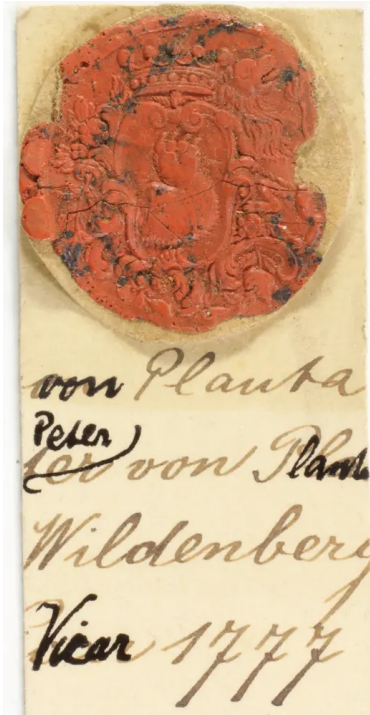 von Planta
Peter
ter von Planta
Wildenberg
Vicar 1777